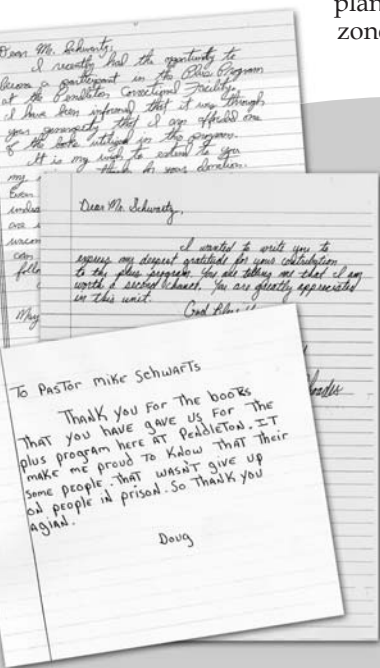 plan
zone
Dear Mr. Schwartz,
I recently had the opportunity to
become a participant in the Plus Program
at the Pendleton Correctional Facility.
I have been informed that it was through
your generosity that I am afforded one
of the books utilized in the program.
It is my wish to extend to you
my thanks for your donation.
Even
are
can
follo
May
Dear Mr. Schwartz,
I wanted to write you to
express my deepest gratitude for your contribution
to the plus program. You are telling me that I am
worth a second chance. You are greatly appreciated
in this unit.
God Bless
hoades
To PASTOR mike SchwarTs
THANK you For THE booKs
THAT you HAVE gAVE us FOR THE
plus program here AT PendLeTon. IT
mAKE me proud To Know THAT Their
some people. THAT WASN'T give up
ON people iN prison. So THANK you
AgiAN.
Doug